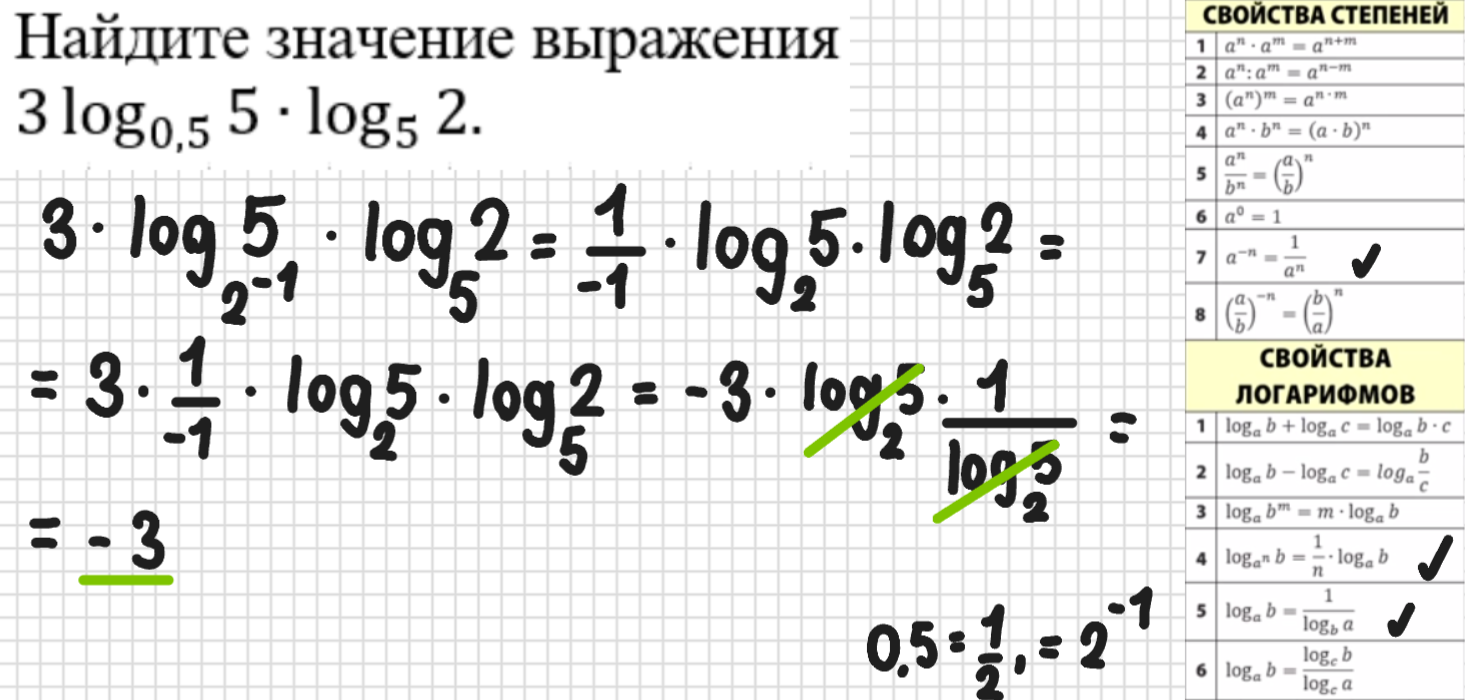 Найдите значение выражения
3 log₀,₅ 5 · log₅ 2.
3 · log_{2⁻¹} 5 · log₅ 2 = 1/-1 · log₂ 5 · log₅ 2 =
= 3 · 1/-1 · log₂ 5 · log₅ 2 = -3 · log₂ 5 · 1/log₂ 5 =
= -3
0,5 = 1/2, = 2⁻¹
СВОЙСТВА СТЕПЕНЕЙ
1 aⁿ · aᵐ = aⁿ⁺ᵐ
2 aⁿ : aᵐ = aⁿ⁻ᵐ
3 (aⁿ)ᵐ = aⁿ˙ᵐ
4 aⁿ · bⁿ = (a · b)ⁿ
5 aⁿ/bⁿ = (a/b)ⁿ
6 a⁰ = 1
7 a⁻ⁿ = 1/aⁿ ✓
8 (a/b)⁻ⁿ = (b/a)ⁿ
СВОЙСТВА
ЛОГАРИФМОВ
1 logₐ b + logₐ c = logₐ b · c
2 logₐ b − logₐ c = logₐ b/c
3 logₐ bᵐ = m · logₐ b
4 log_{aⁿ} b = 1/n · logₐ b ✓
5 logₐ b = 1/log_b a ✓
6 logₐ b = log_c b/log_c a